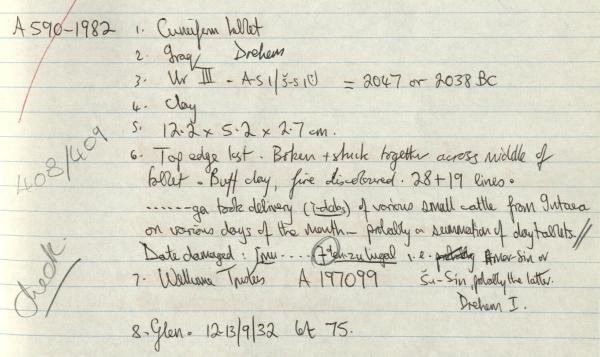 A 590-1982 1. Cuneiform tablet
2. Iraq Drehem
3. Ur III - AS1/Š-S1(?) = 2047 or 2038 BC
4. Clay
408/409
5. 12.2 x 5.2 x 2.7 cm.
6. Top edge lost. Broken + stuck together across middle of
tablet. Buff clay, fire discoloured. 28+19 lines.
.......ga took delivery (ì-dab5) of various small cattle from Intaea
on various days of the month - probably a summation of day tablets. //
Date damaged: [mu- .... -en-zu lugal i.e. Amar-Sin or
Šu-Sin, probably the latter.
Drehem I.
Check.
7. Wellcome Trustees A 197099
8. Glen. 12-13/9/32 lot 75.